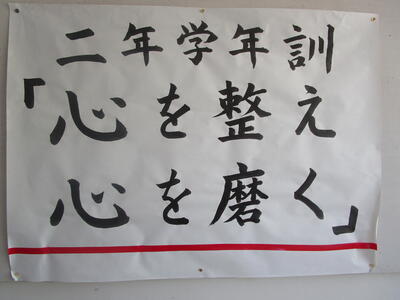 二年学年訓
「心を整え
心を磨く」